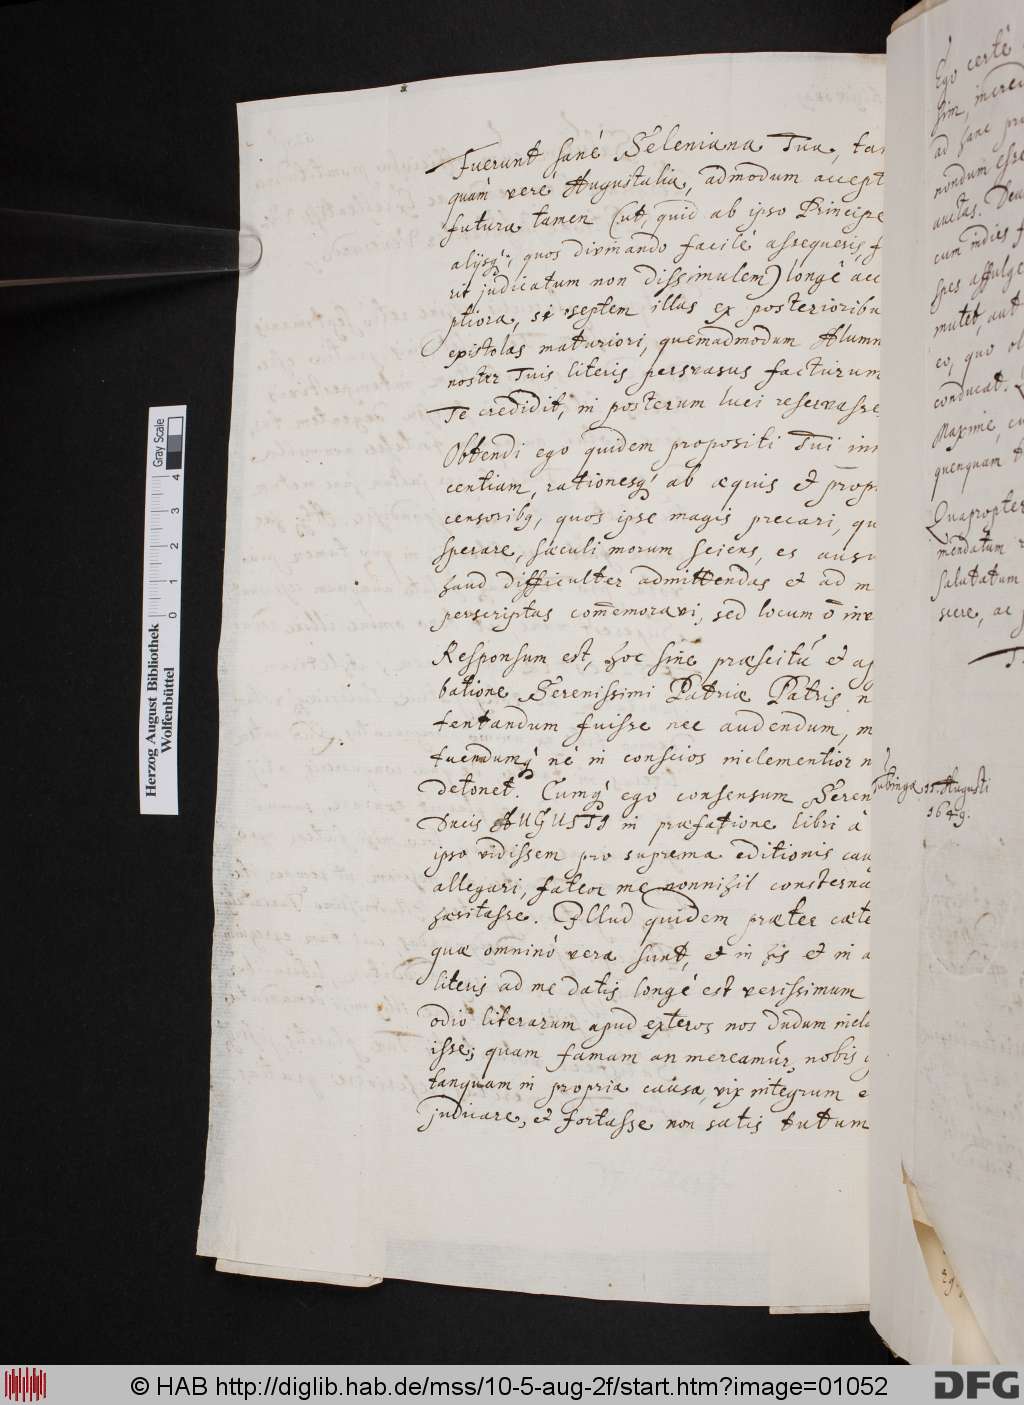 Fuerunt sanè Seleniana Tua, tan
quàm vere Augustalia, admodum accept
futura tamen (ut, quid ab ipso Principe
alijsq;, quos divinando facilè assequeris, f
rit judicatum non dissimulem) longè acc
ptiora, si septem illas ex posterioribu
epistolas maturiori, quemadmodum Alumn
noster Tuis literis persvasus facturum
Te credidit, in posterum luci reservasse
Obtendi ego quidem propositi Tui inn
centiam, rationesq; ab æquis et prop
censoribq, quos ipse magis precari, qu
sperare, sæculi morum sciens, es ausu
haud difficulter admittendas et ad m
perscriptas com̄emoravi, sed locum ō inv
Responsum est, hoc sine præscitú et ap
batione Serenissimi Patriæ Patris n
tentandum fuisse nec audendum, m
tuendumq; nè in conscios inclementior n
detonet. Cumq; ego consensum Seren
Ducis AUGUSTI in præfatione libri à
ipso vidissem pro suprema editionis cau
allegari, fateor me nonnihil consterna
hæsitasse. Illud quidem præter cæte
quæ omninò vera sunt, et in his et in a
literis ad me datis longè est verissimum
odio literarum apud exteros nos dudum incla
isse; quam famam an mereamúr, nobis q
tanquam in propria causa, vix integrum e
judicare, et fortasse non satis tutum
Ego certè
sim, incred
ad hanc pr
nondum esse
auctas. Deu
cum indies f
spes affulge
mutet, aut
eo, quo ol
conducat.
Maxime, cu
quenquam t
Quapropter
mendatum
salutatum
scere, ac
T
Tubingæ 11. Augusti
1649.
Herzog August Bibliothek
Wolfenbüttel
0 1 2 3 4 Gray Scale
© HAB http://diglib.hab.de/mss/10-5-aug-2f/start.htm?image=01052
DFG